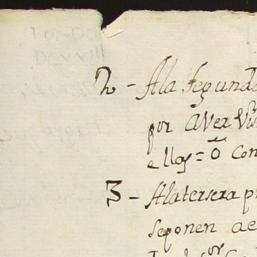 2 - Ala segunda
por aver vis
ellos = o con
3 - Alatersera p
seponen ae